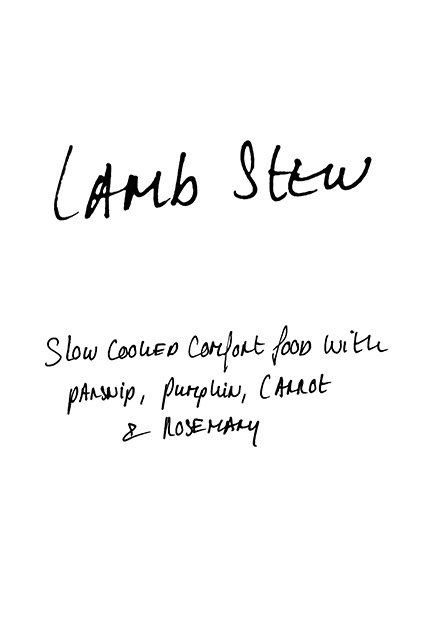 Lamb Stew
Slow cooked comfort food with
parsnip, pumpkin, carrot
& rosemary